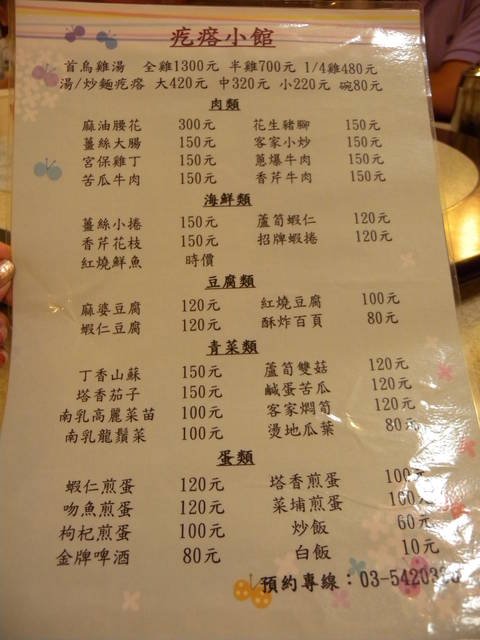 疙瘩小館
首烏雞湯 全雞1300元 半雞700元 1/4雞480元
湯/炒麵疙瘩 大420元 中320元 小220元 碗80元
肉類
麻油腰花 300元 花生豬腳 150元
薑絲大腸 150元 客家小炒 150元
宮保雞丁 150元 蔥爆牛肉 150元
苦瓜牛肉 150元 香芹牛肉 150元
海鮮類
薑絲小捲 150元 蘆筍蝦仁 120元
香芹花枝 150元 招牌蝦捲 120元
紅燒鮮魚 時價
豆腐類
麻婆豆腐 120元 紅燒豆腐 100元
蝦仁豆腐 120元 酥炸百頁 80元
青菜類
丁香山蘇 150元 蘆筍雙菇 120元
塔香茄子 150元 鹹蛋苦瓜 120元
南乳高麗菜苗 100元 客家燜筍 120元
南乳龍鬚菜 100元 燙地瓜葉 80元
蛋類
蝦仁煎蛋 120元 塔香煎蛋 100元
吻魚煎蛋 120元 菜埔煎蛋 100元
枸杞煎蛋 100元 炒飯 60元
金牌啤酒 80元 白飯 10元
預約專線：03-5420